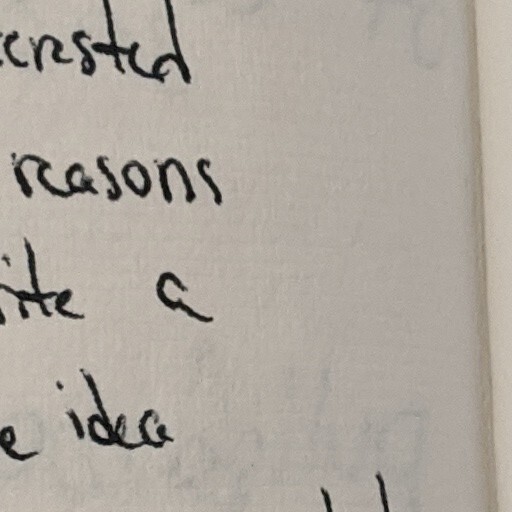 erested
reasons
ite a
e idea